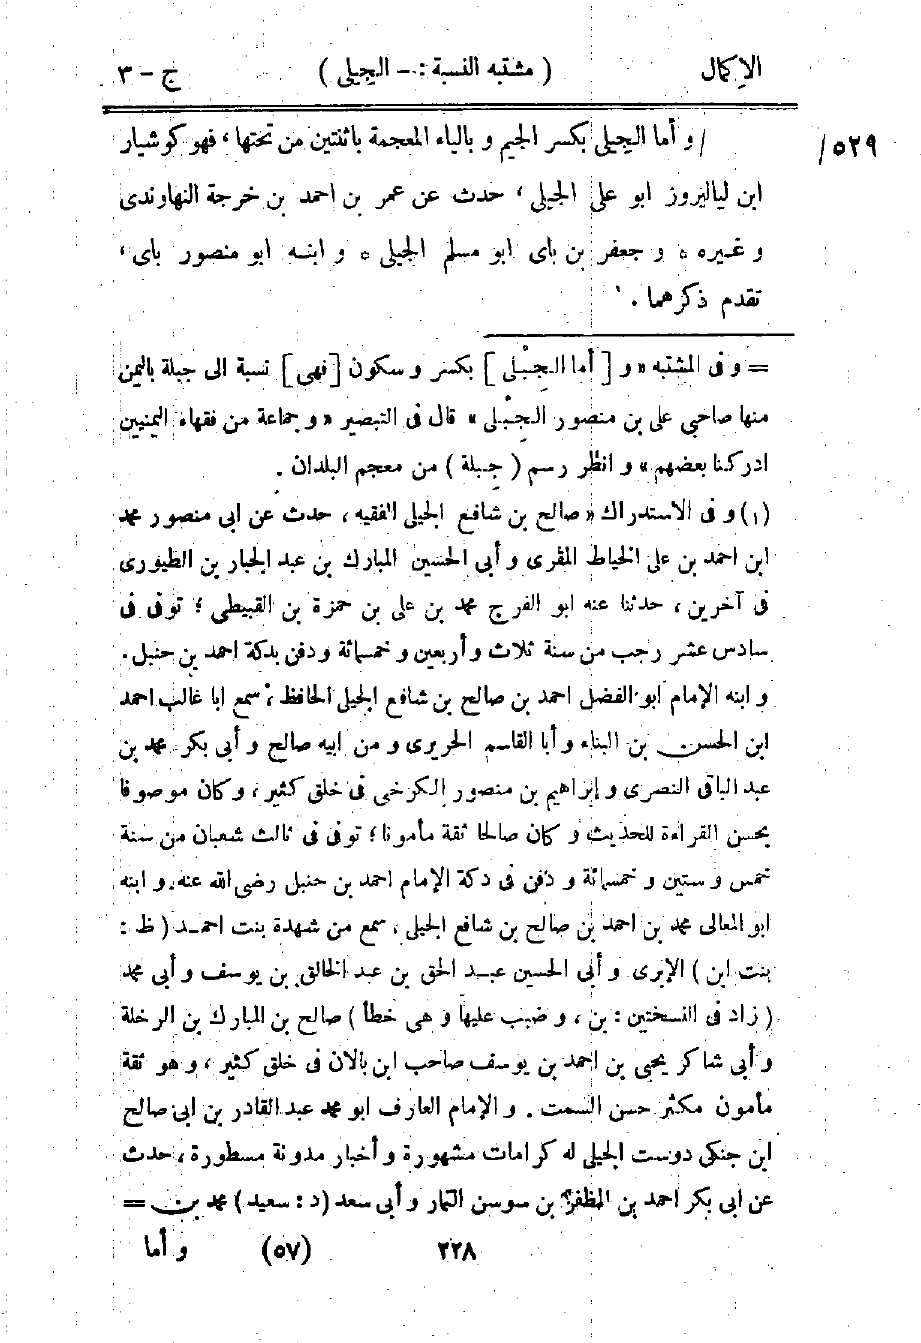 الإكمال ( مشتبه النسبة : – الجيلى ) ج – ٣
/ و أما الجيلى بكسر الجيم و بالياء المعجمة باثنتين من تحتها ، فهو كوشيار ٥٢٩/
ابن لياليروز ابو على الجيلى ، حدث عن عمر بن احمد بن خرجة النهاوندى
و غيره ٥ و جعفر بن باى ابو مسلم الجيلى ٥ و ابنه ابو منصور باى ،
تقدم ذكرهما . ١
= و فى المشتبه « و [ أما الجِبْلى ] بكسر و سكون [ فهى ] نسبة الى جبلة باليمن
منها صاحبى على بن منصور الجِبْلى » قال فى التبصير « و جماعة من فقهاء اليمنيين
ادركنا بعضهم » و انظر رسم ( جِبلة ) من معجم البلدان .
(١) و فى الاستدراك « صالح بن شافع الجيلى الفقيه ، حدث عن ابى منصور محمد
ابن احمد بن على الخياط المقرى و أبى الحسين المبارك بن عبد الجبار بن الطيورى
فى آخرين ، حدثنا عنه ابو الفرج محمد بن على بن حمزة بن القبيطى ؛ توفى فى
سادس عشر رجب من سنة ثلاث و أربعين و خمسمائة و دفن بدكة احمد بن حنبل .
و ابنه الإمام ابو الفضل احمد بن صالح بن شافع الجيلى الحافظ ، سمع ابا غالب احمد
ابن الحسن بن البناء و أبا القاسم الحريرى و من ابيه صالح و أبى بكر محمد بن
عبد الباقى النصرى و إبراهيم بن منصور الكرخى فى خلق كثير ، و كان موصوفا
بحسن القراءة للحديث و كان صالحا ثقة مأمونا ؛ توفى فى ثالث شعبان من سنة
خمس و ستين و خمسمائة و دفن فى دكة الإمام احمد بن حنبل رضى الله عنه . و ابنه
ابو المعالى محمد بن احمد بن صالح بن شافع الجيلى ، سمع من شهدة بنت احمد ( ظ :
بنت ابن ) الإبرى و أبى الحسين عبد الحق بن عبد الخالق بن يوسف و أبى محمد
( زاد فى النسختين : بن ، و ضبب عليها و هى خطأ ) صالح بن المبارك بن الرخلة
و أبى شاكر يحيى بن احمد بن يوسف صاحب ابن بالان فى خلق كثير ، و هو ثقة
مأمون مكثر حسن السمت . و الإمام العارف ابو محمد عبد القادر بن ابى صالح
ابن جنكى دوست الجيلى له كرامات مشهورة و أخبار مدونة مسطورة ، حدث
عن ابى بكر احمد بن المظفر بن سوسن التمار و أبى سعد ( د : سعيد ) محمد بن =
٢٢٨ (٥٧) و أما